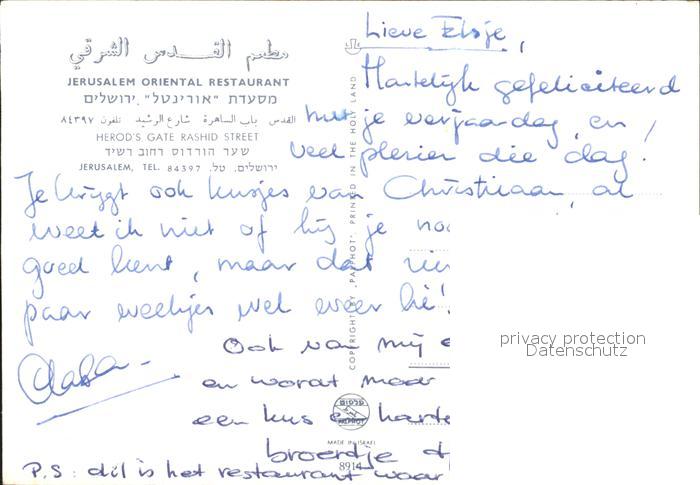 مطعم القدس الشرقي
JERUSALEM ORIENTAL RESTAURANT
מסעדת "אוריינטל", ירושלים
القدس باب الساهرة شارع الرشيد تلفون ٨٤٣٩٧
HEROD'S GATE RASHID STREET
שער הורדוס רחוב רשיד
JERUSALEM, TEL. 84397 .ירושלים, טל
COPYRIGHT BY "PALPHOT" PRINTED IN THE HOLY LAND
Lieve Elsje,
Hartelijk gefeliciteerd
met je verjaardag, en
veel plezier die dag!
Je krijgt ook kusjes van Christiaan, al
weet ik niet of hij je
goed kent, maar dat
paar weekjes wel weer hé!
Ook van mij
en wordt maar
een kus
broerdje
P.S: dit is het restaurant waar
פלפוט
PALPHOT
MADE IN ISRAEL
8914
privacy protection
Datenschutz